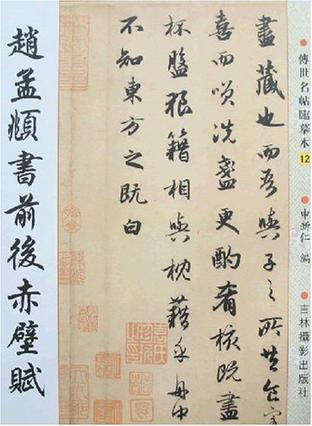 傳世名帖臨摹本 12
編
吉林攝影出版社
盡藏也而吾與子之所共食客
喜而咲洗盞更酌肴核既盡
杯盤狼藉相與枕藉乎舟中
不知東方之既白
趙孟頫書前後赤壁賦